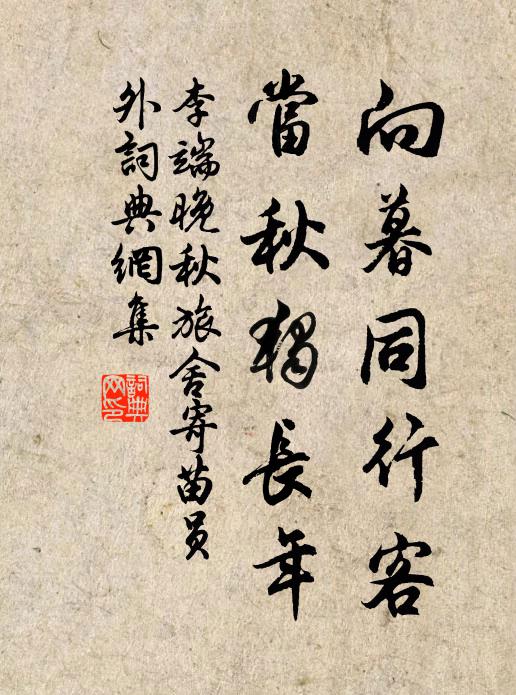 向暮同行客
當秋獨長年
李端晚秋旅舍寄苗員
外詞典網集
詞典
网印